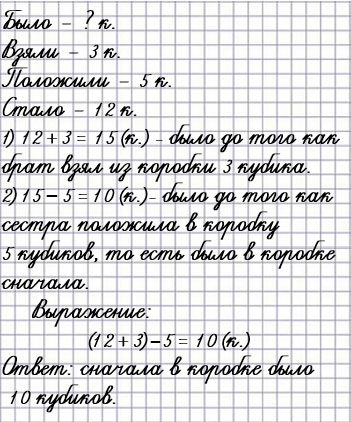 Было – ? к.
Взяли – 3 к.
Положили – 5 к.
Стало – 12 к.
1) 12 + 3 = 15 (к.) – было до того как
брат взял из коробки 3 кубика.
2) 15 – 5 = 10 (к.) – было до того как
сестра положила в коробку
5 кубиков, то есть было в коробке
сначала.
Выражение:
(12 + 3) – 5 = 10 (к.)
Ответ: сначала в коробке было
10 кубиков.